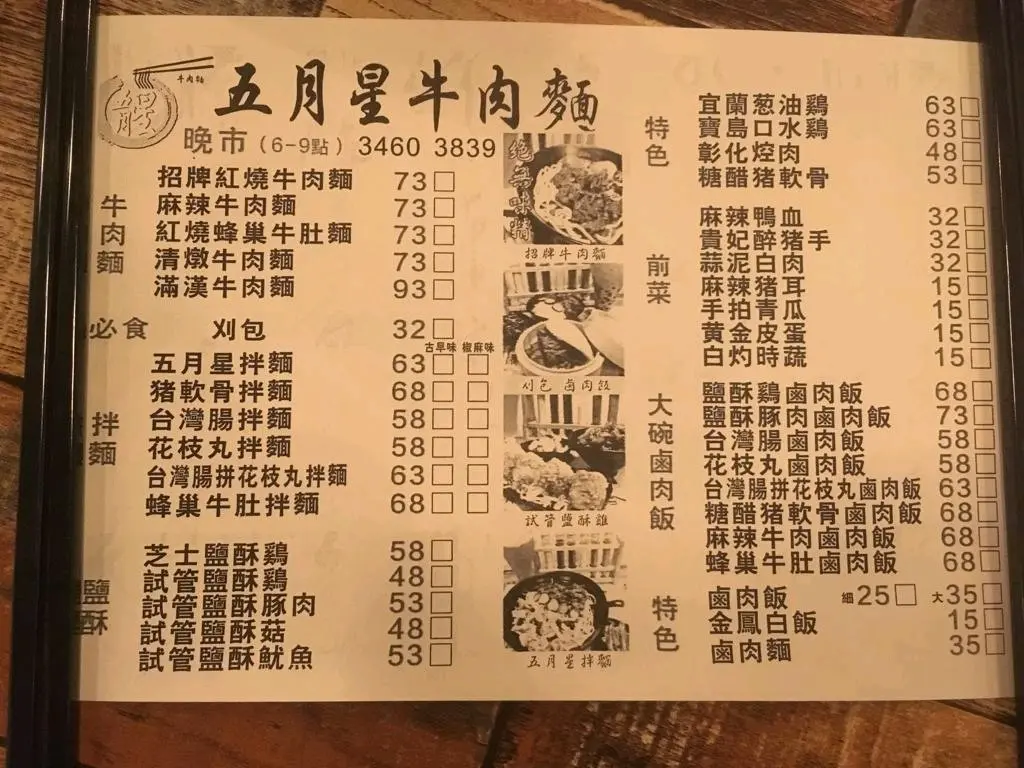 牛肉麵
五月星牛肉麵
晚市（6-9點）3460 3839
牛肉麵
招牌紅燒牛肉麵 73□
麻辣牛肉麵 73□
紅燒蜂巢牛肚麵 73□
清燉牛肉麵 73□
滿漢牛肉麵 93□
必食 刈包 32□
古早味 椒麻味
拌麵
五月星拌麵 63□ □
猪軟骨拌麵 68□ □
台灣腸拌麵 58□ □
花枝丸拌麵 58□ □
台灣腸拼花枝丸拌麵 63□ □
蜂巢牛肚拌麵 68□ □
鹽酥
芝士鹽酥鷄 58□
試管鹽酥鷄 48□
試管鹽酥豚肉 53□
試管鹽酥菇 48□
試管鹽酥魷魚 53□
招牌牛肉麵
刈包 鹵肉飯
試管鹽酥雞
五月星拌麵
特色
宜蘭葱油鷄 63□
寶島口水鷄 63□
彰化焢肉 48□
糖醋猪軟骨 53□
前菜
麻辣鴨血 32□
貴妃醉猪手 32□
蒜泥白肉 32□
麻辣猪耳 15□
手拍青瓜 15□
黄金皮蛋 15□
白灼時蔬 15□
大碗鹵肉飯
鹽酥鷄鹵肉飯 68□
鹽酥豚肉鹵肉飯 73□
台灣腸鹵肉飯 58□
花枝丸鹵肉飯 58□
台灣腸拼花枝丸鹵肉飯 63□
糖醋猪軟骨鹵肉飯 68□
麻辣牛肉鹵肉飯 68□
蜂巢牛肚鹵肉飯 68□
特色
鹵肉飯 細25□ 大35□
金鳳白飯 15□
鹵肉麵 35□